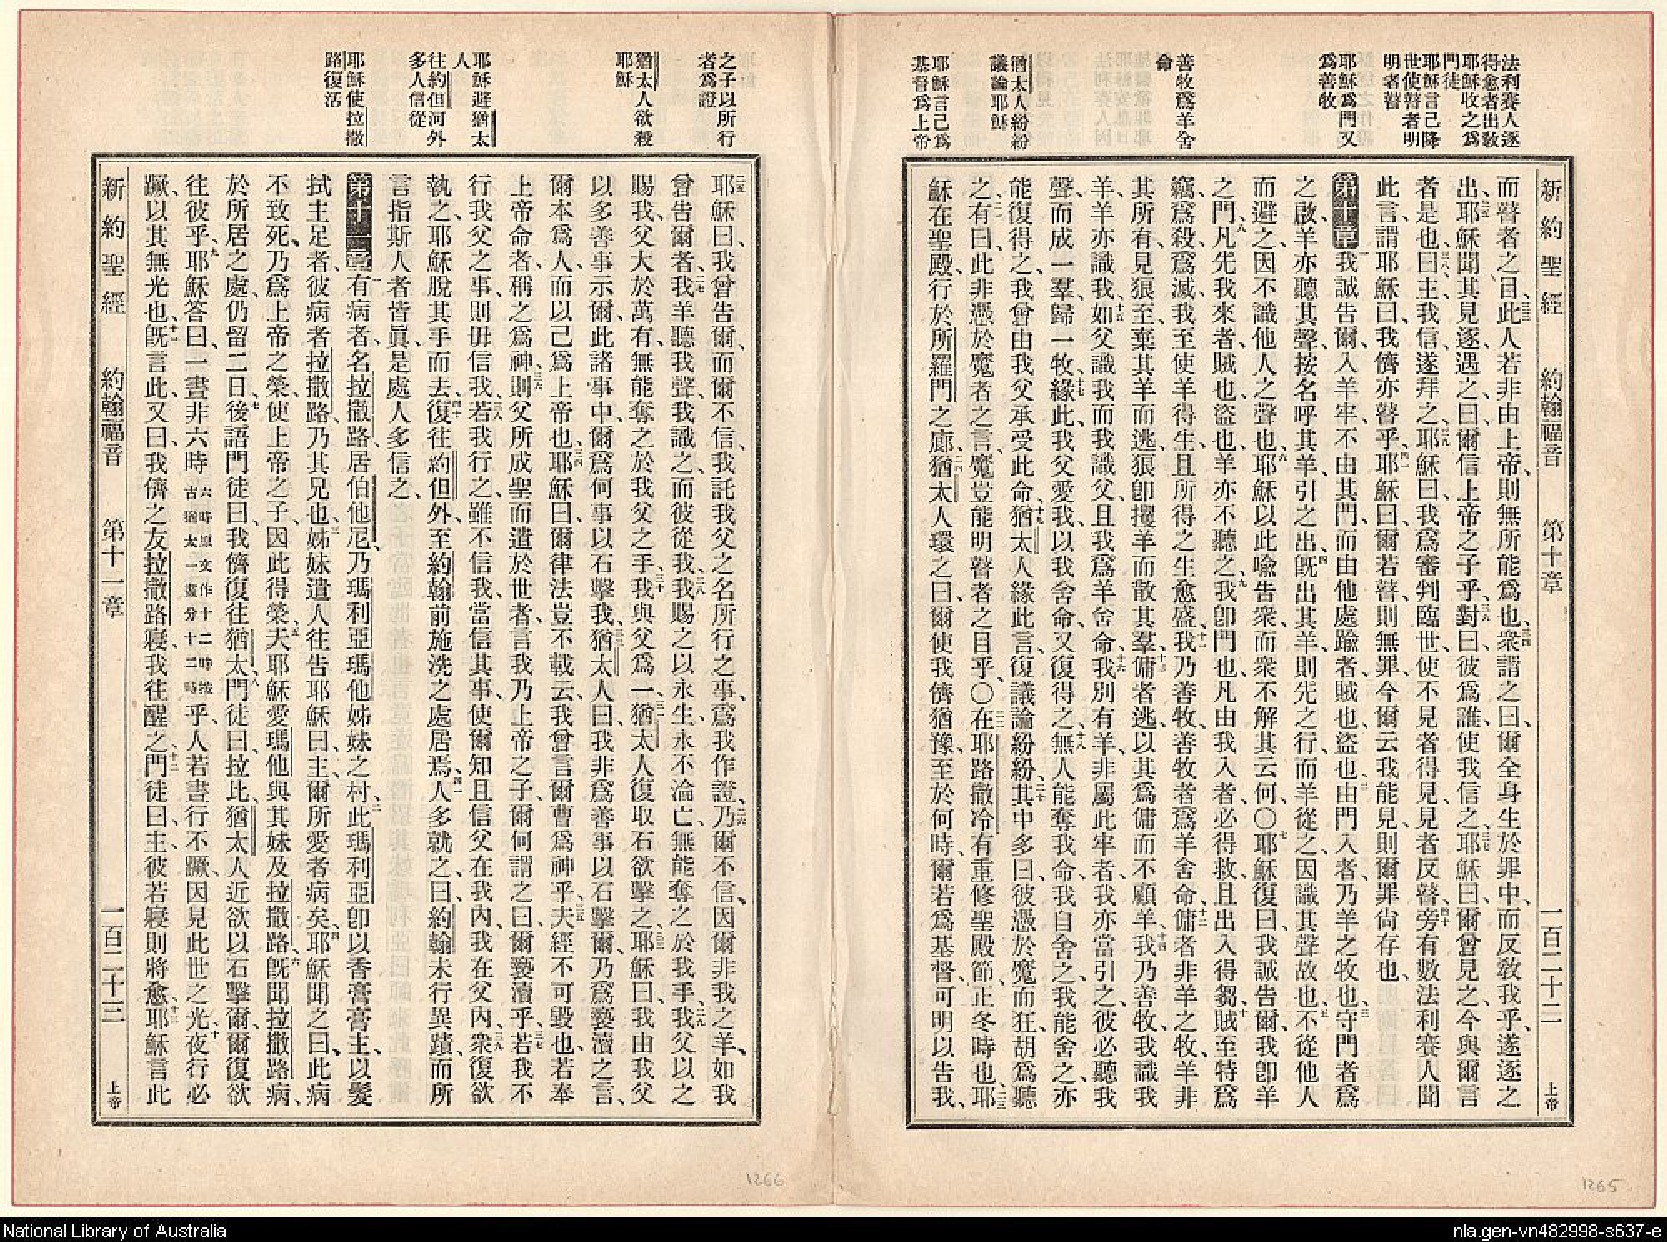 法利賽人逐
得愈者出教
耶穌收之爲
門徒
耶穌言己降
世使瞽者明
明者瞽
耶穌爲門又
爲善牧
善牧爲羊舍
命
猶太人紛紛
議論耶穌
耶穌言己爲
基督爲上帝
新約聖經 約翰福音 第十章 一百二十二 上帝
而瞽者之目、此人若非由上帝、則無所能爲也、衆謂之曰、爾全身生於罪中、而反教我乎、遂逐之
出、耶穌聞其見逐、遇之曰、爾信上帝之子乎、對曰、彼爲誰、使我信之、耶穌曰、爾曾見之、今與爾言
者是也、曰、主、我信、遂拜之、耶穌曰、我爲審判臨世、使不見者得見、見者反瞽、旁有數法利賽人聞
此言、謂耶穌曰、我儕亦瞽乎、耶穌曰、爾若瞽、則無罪、今爾云我能見、則爾罪尙存也、
第十章 我誠告爾、入羊牢、不由其門、而由他處踰者、賊也、盜也、由門入者、乃羊之牧也、守門者爲
之啟、羊亦聽其聲、按名呼其羊、引之出、旣出其羊、則先之行、而羊從之、因識其聲故也、不從他人
而避之、因不識他人之聲也、耶穌以此喩告衆、而衆不解其云何、〇耶穌復曰、我誠告爾、我卽羊
之門、凡先我來者、賊也、盜也、羊亦不聽之、我卽門也、凡由我入者、必得救、且出入得芻、賊至特爲
竊爲殺爲滅、我至使羊得生、且所得之生愈盛、我乃善牧、善牧者爲羊舍命、傭者非羊之牧、羊非
其所有、見狼至、棄其羊而逃、狼卽攫羊而散其羣、傭者逃、以其爲傭而不顧羊、我乃善牧、我識我
羊、羊亦識我、如父識我而我識父、且我爲羊舍命、我別有羊、非屬此牢者、我亦當引之、彼必聽我
聲、而成一羣、歸一牧、緣此、我父愛我、以我舍命、又復得之、無人能奪我命、我自舍之、我能舍之、亦
能復得之、我曾由我父承受此命、猶太人緣此言、復議論紛紛、其中多曰、彼憑於魔而狂、胡爲聽
之、有曰、此非憑於魔者之言、魔豈能明瞽者之目乎、〇在耶路撒冷有重修聖殿節、正冬時也、耶
穌在聖殿、行於所羅門之廊、猶太人環之曰、爾使我儕猶豫、至於何時、爾若爲基督、可明以告我、
之子以所行
者爲證
猶太人欲殺
耶穌
耶穌避猶太
人
往約但河外
多人信從
耶穌使拉撒
路復活
耶穌曰、我曾告爾、而爾不信、我託我父之名所行之事、爲我作證、乃爾不信、因爾非我之羊、如我
曾告爾者、我羊聽我聲、我識之、而彼從我、我賜之以永生、永不淪亡、無能奪之於我手、我父以之
賜我、父大於萬有、無能奪之於我父之手、我與父爲一、猶太人復取石欲擊之、耶穌曰、我由我父
以多善事示爾、此諸事中、爾爲何事以石擊我、猶太人曰、我非爲善事以石擊爾、乃爲褻瀆之言、
爾本爲人、而以己爲上帝也、耶穌曰、爾律法豈不載云、我曾言爾曹爲神乎、夫經不可毀也、若奉
上帝命者、稱之爲神、則父所成聖而遣於世者、言我乃上帝之子、爾何謂之曰、爾褻瀆乎、若我不
行我父之事、則毋信我、若我行之、雖不信我、當信其事、使爾知且信父在我內、我在父內、衆復欲
執之、耶穌脫其手而去、復往約但外、至約翰前施洗之處居焉、人多就之、曰、約翰未行異蹟、而所
言指斯人者皆眞、是處人多信之、
第十一章 有病者、名拉撒路、居伯他尼、乃瑪利亞瑪他姊妹之村、此瑪利亞、卽以香膏膏主、以髮
拭主足者、彼病者拉撒路、乃其兄也、姊妹遣人往告耶穌曰、主、爾所愛者病矣、耶穌聞之曰、此病
不致死、乃爲上帝之榮、使上帝之子因此得榮、夫耶穌愛瑪他、與其妹及拉撒路、旣聞拉撒路病、
於所居之處、仍留二日、後語門徒曰、我儕復往猶太、門徒曰、拉比、猶太人近欲以石擊爾、爾復欲
往彼乎、耶穌答曰、一晝非六時六時原文作十二時蓋古猶太一晝分十二時乎、人若晝行不蹶、因見此世之光、夜行必
蹶、以其無光也、旣言此、又曰、我儕之友拉撒路寢、我往醒之、門徒曰、主、彼若寢則將愈、耶穌言此
新約聖經 約翰福音 第十一章 一百二十三 上帝
1266
1265
National Library of Australia
nla.gen-vn482998-s637-e